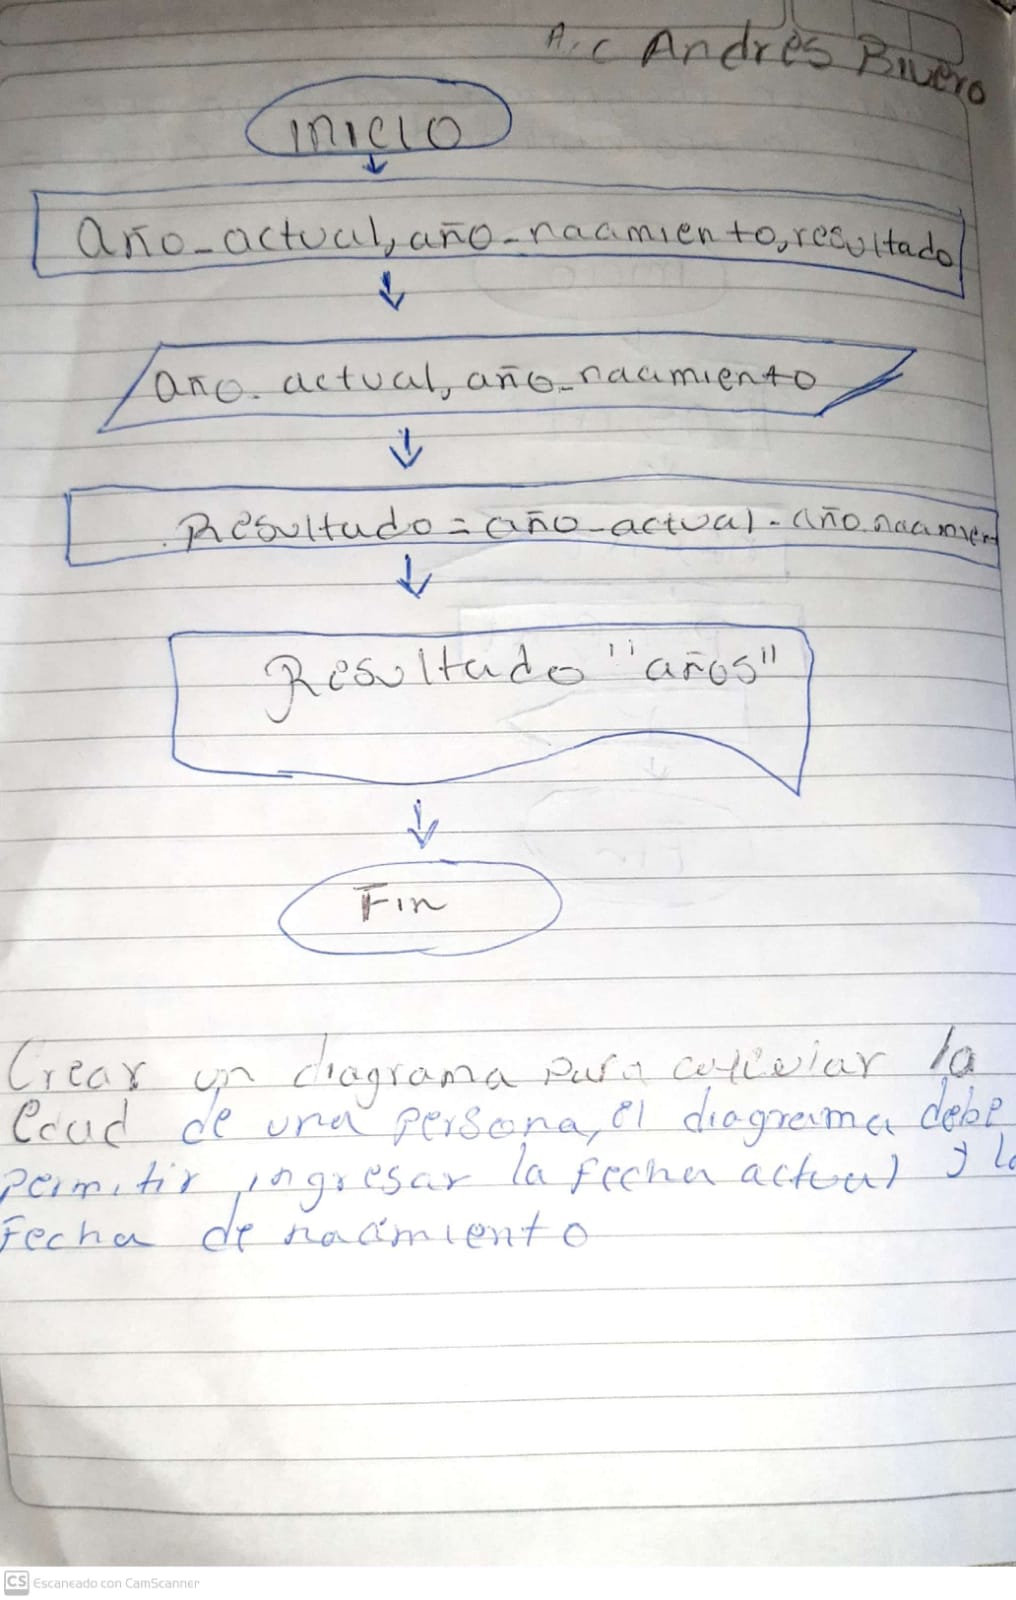 A.c Andrés Bivero
inicio
Año_actual, año_nacimiento, resultado
año_actual, año_nacimiento
Resultado = año_actual - año_nacimien
Resultado "años"
Fin
Crear un diagrama para calcular la
Edad de una persona, el diagrama debe
permitir ingresar la fecha actual y la
Fecha de nacimiento
CS Escaneado con CamScanner